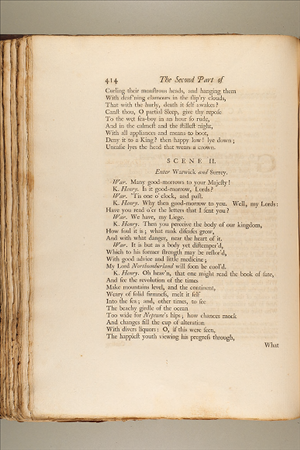 414 The Second Part of
Curling their monstrous heads, and hanging them
With deaf'ning clamours in the slip'ry clouds,
That with the hurly, death it self awakes?
Canst thou, O partial Sleep, give thy repose
To the wet sea-boy in an hour so rude,
And in the calmest and the stillest night,
With all appliances and means to boot,
Deny it to a King? then happy low! lye down;
Uneasie lyes the head that wears a crown.
SCENE II.
Enter Warwick and Surrey.
War. Many good-morrows to your Majesty!
K. Henry. Is it good-morrow, Lords?
War. 'Tis one o' clock, and past.
K. Henry. Why then good-morrow to you. Well, my Lords:
Have you read o'er the letters that I sent you?
War. We have, my Liege.
K. Henry. Then you perceive the body of our kingdom,
How foul it is; what rank diseases grow,
And with what danger, near the heart of it.
War. It is but as a body yet distemper'd,
Which to his former strength may be restor'd,
With good advice and little medicine;
My Lord Northumberland will soon be cool'd.
K. Henry. Oh heav'n, that one might read the book of fate,
And see the revolution of the times
Make mountains level, and the continent,
Weary of solid firmness, melt it self
Into the sea; and, other times, to see
The beachy girdle of the ocean
Too wide for Neptune's hips; how chances mock
And changes fill the cup of alteration
With divers liquors: O, if this were seen,
The happiest youth viewing his progress through,
What